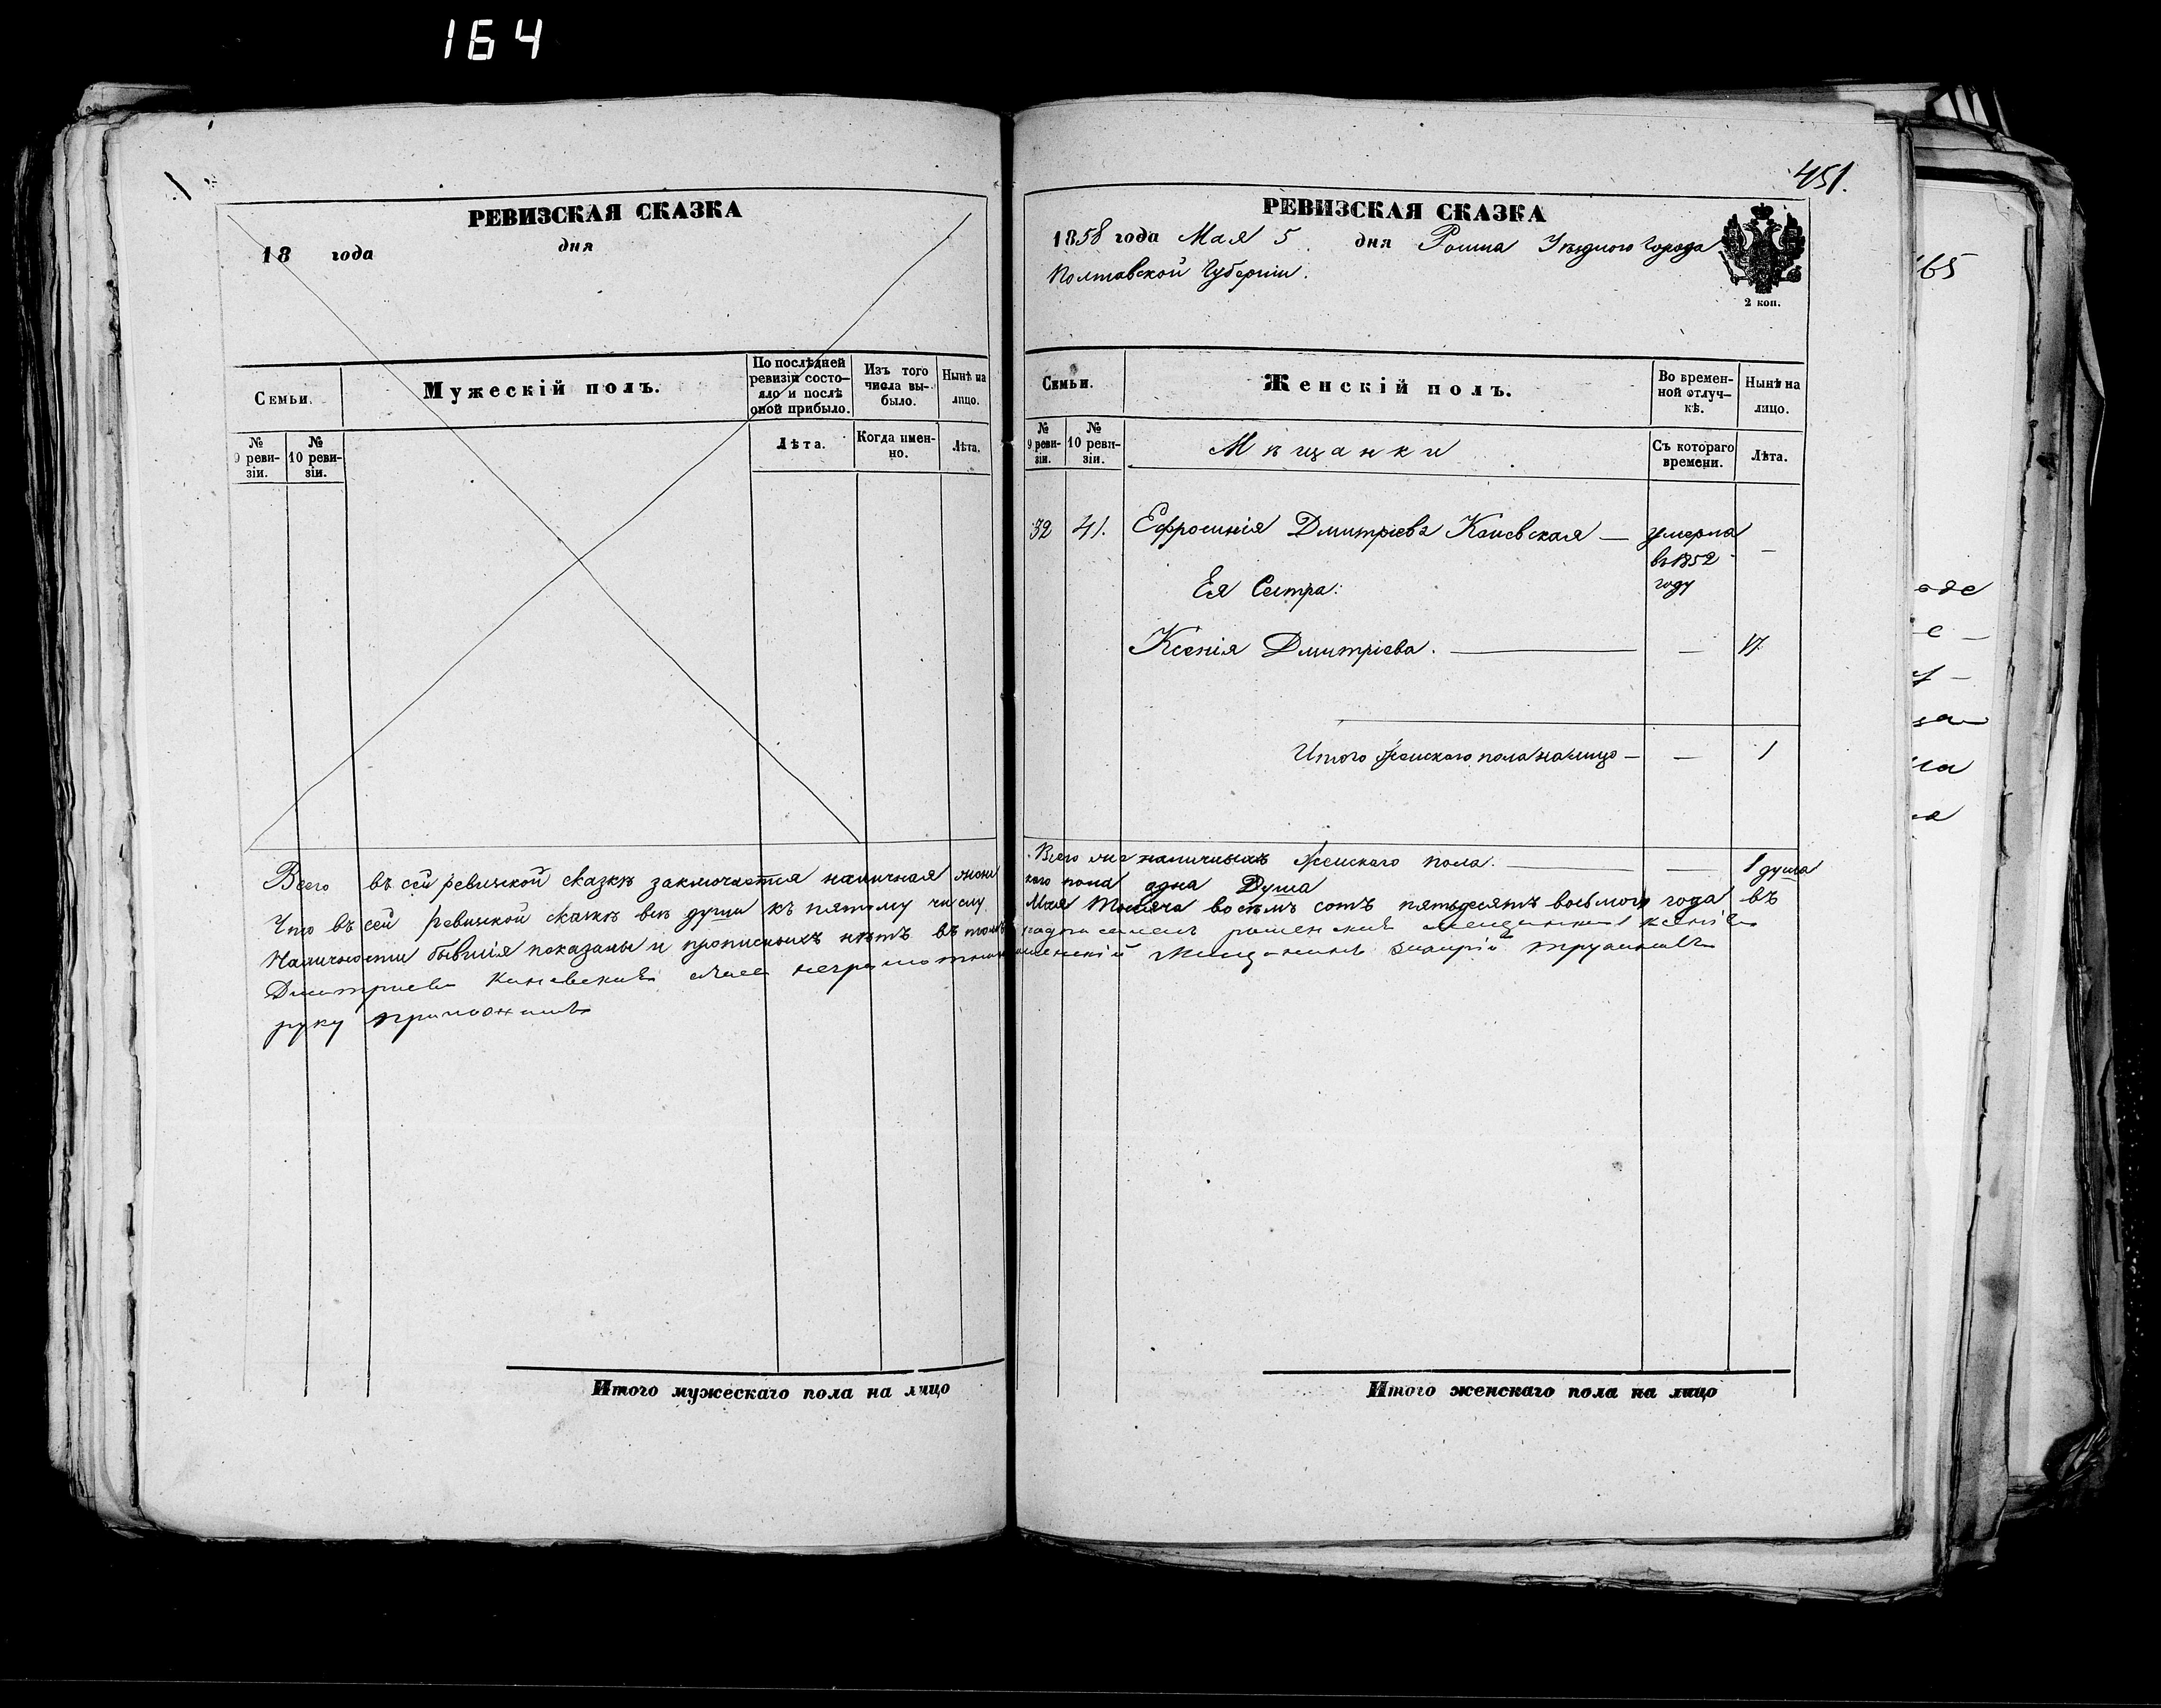 164
РЕВИЗСКАЯ СКАЗКА
18 года дня
Семьи.
Мужескій полъ.
По послѣдней ревизіи состо-
яло и послѣ оной прибыло.
Изъ того числа вы-
было.
Нынѣ на лицо.
№ 9 реви-
зіи.
№ 10 реви-
зіи.
Лѣта.
Когда имен-
но.
Лѣта.
Всего въ сей ревизской сказкѣ заключается наличная женс
Что въ сей ревизской сказкѣ всѣ души къ пятому числу
Наличности бывшія показаны и прописныхъ нѣтъ въ томъ
Дмитриева
руку приложилъ
Итого мужескаго пола на лицо
451.
РЕВИЗСКАЯ СКАЗКА
1858 года Мая 5 дня Ромна Уѣзднаго Города
Полтавской Губерніи.
2 коп.
Семьи.
Женскій полъ.
Во времен-
ной отлуч-
кѣ.
Нынѣ на лицо.
№ 9 реви-
зіи.
№ 10 реви-
зіи.
Мѣщанки
Съ котораго времени.
Лѣта.
32 41. Ефросинія Дмитріева Каневская — умерла —
въ 1852
году
Ея Сестра:
Ксенія Дмитріева. — — 17.
Итого женскаго пола налицо — — 1
Всего наличныхъ Женскаго пола. — 1 душа
каго пола одна Душа
Мая Тысяча восемъ сотъ пятьдесятъ восьмого года въ
Итого женскаго пола на лицо
165